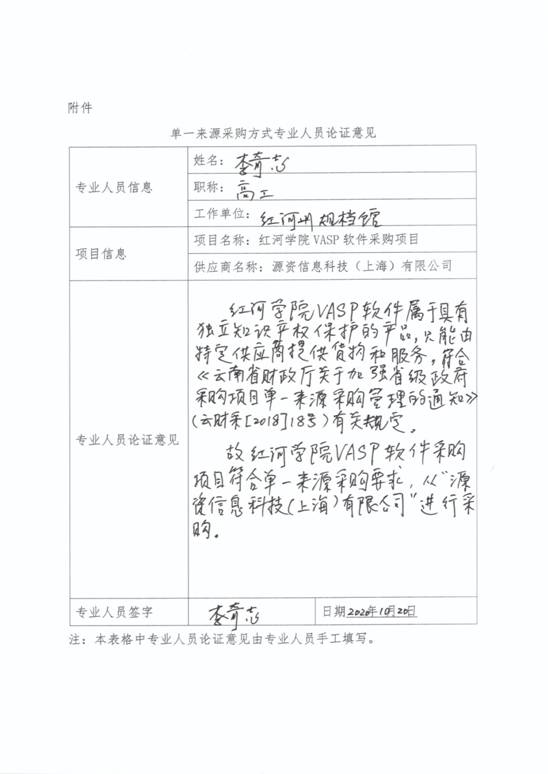 附件
单一来源采购方式专业人员论证意见
专业人员信息
姓名：李奇志
职称：高工
工作单位：红河州规档馆
项目信息
项目名称：红河学院 VASP 软件采购项目
供应商名称：源资信息科技（上海）有限公司
专业人员论证意见
红河学院VASP软件属于具有
独立知识产权保护的产品，只能由
特定供应商提供货物和服务，符合
《云南省财政厅关于加强省级政府
采购项目单一来源采购管理的通知》
（云财采[2018]18号）有关规定。
故红河学院VASP软件采购
项目符合单一来源采购要求，从“源
资信息科技（上海）有限公司”进行采
购。
专业人员签字
李奇志
日期2020年10月20日
注：本表格中专业人员论证意见由专业人员手工填写。